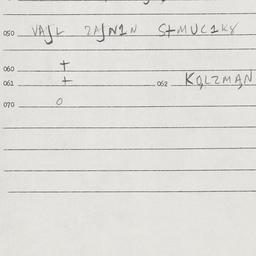 050 VAJL ZAJNIN S+MUC1KY
060 +
061 + 062 KQLZMAN
070 O